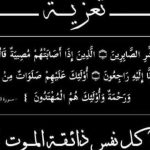 تعزية
ـشِّرِ الصَّابِرِينَ ۝ الَّذِينَ إِذَا أَصَابَتْهُمْ مُصِيبَةٌ قَالُـ
ـا إِلَيْهِ رَاجِعُونَ ۝ أُولَٰئِكَ عَلَيْهِمْ صَلَوَاتٌ مِنْ
وَرَحْمَةٌ وَأُولَٰئِكَ هُمُ الْمُهْتَدُونَ ﴾ سورة
كل نفس ذائقة الموت